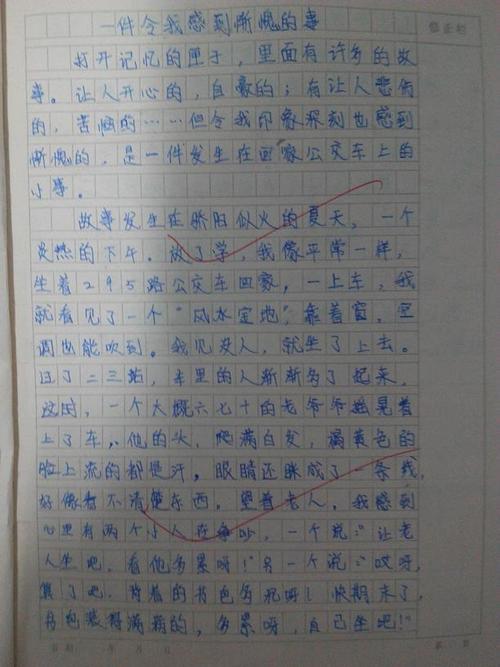 一件令我感到惭愧的事
修正栏
打开记忆的匣子，里面有许多的故
事。让人开心的，自豪的；有让人悲伤
的，苦恼的……但令我印象深刻也感到
惭愧的，是一件发生在回家公交车上的
小事。
故事发生在骄阳似火的夏天，一个
炎热的下午。放了学，我像平常一样，
坐着295路公交车回家，一上车，我
就看见了一个“风水宝地”，靠着窗，空
调也能吹到。我见没人，就坐了上去。
过了二三站，车里的人渐渐多了起来，
这时，一个大概六七十的老爷爷摇晃着
上了车，他的头，爬满白发，橘黄色的
脸上流的都是汗，眼睛还眯成了一条线，
好像看不清楚东西。望着老人，我感到
心里有两个小人在吵，一个说：“让老
人坐吧，看他多累呀！”另一个说：“哎呀，
算了吧，背着的书包多沉呀！快期末了，
书包装得满满的，多累呀，自己坐吧！”